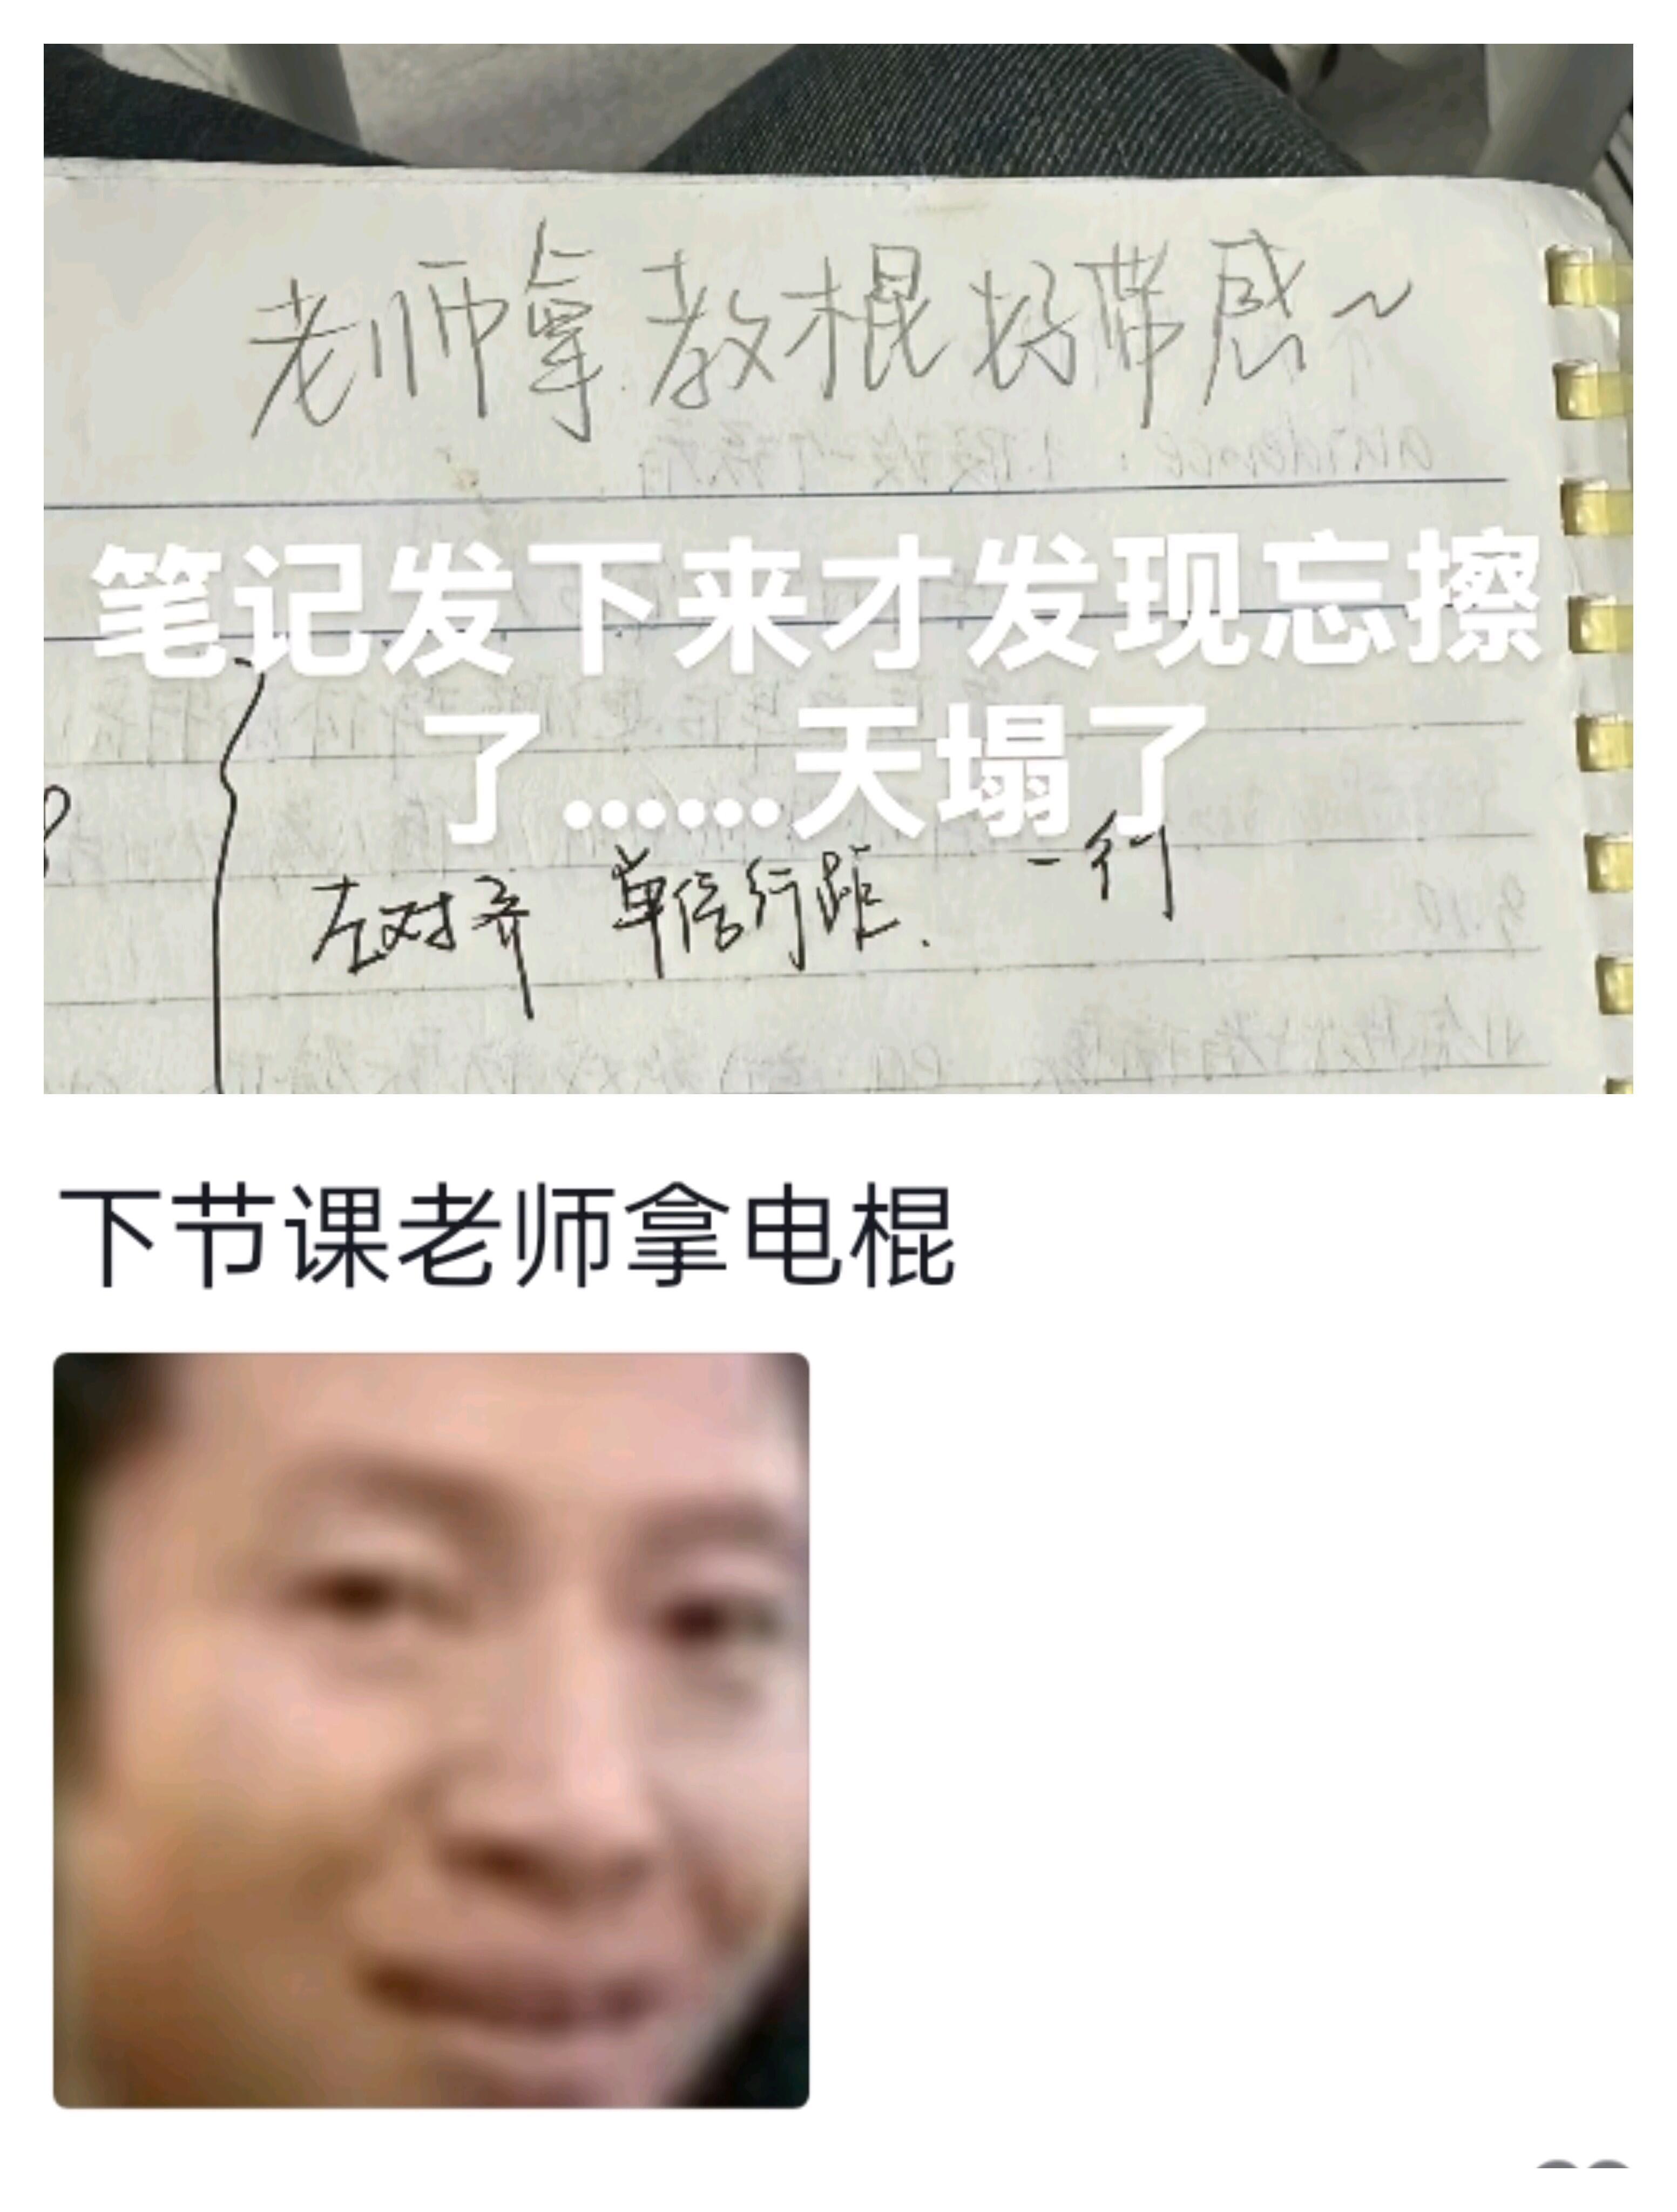 老师拿教棍好带感~
笔记发下来才发现忘擦
了......天塌了
左对齐 单倍行距. 一行
下节课老师拿电棍